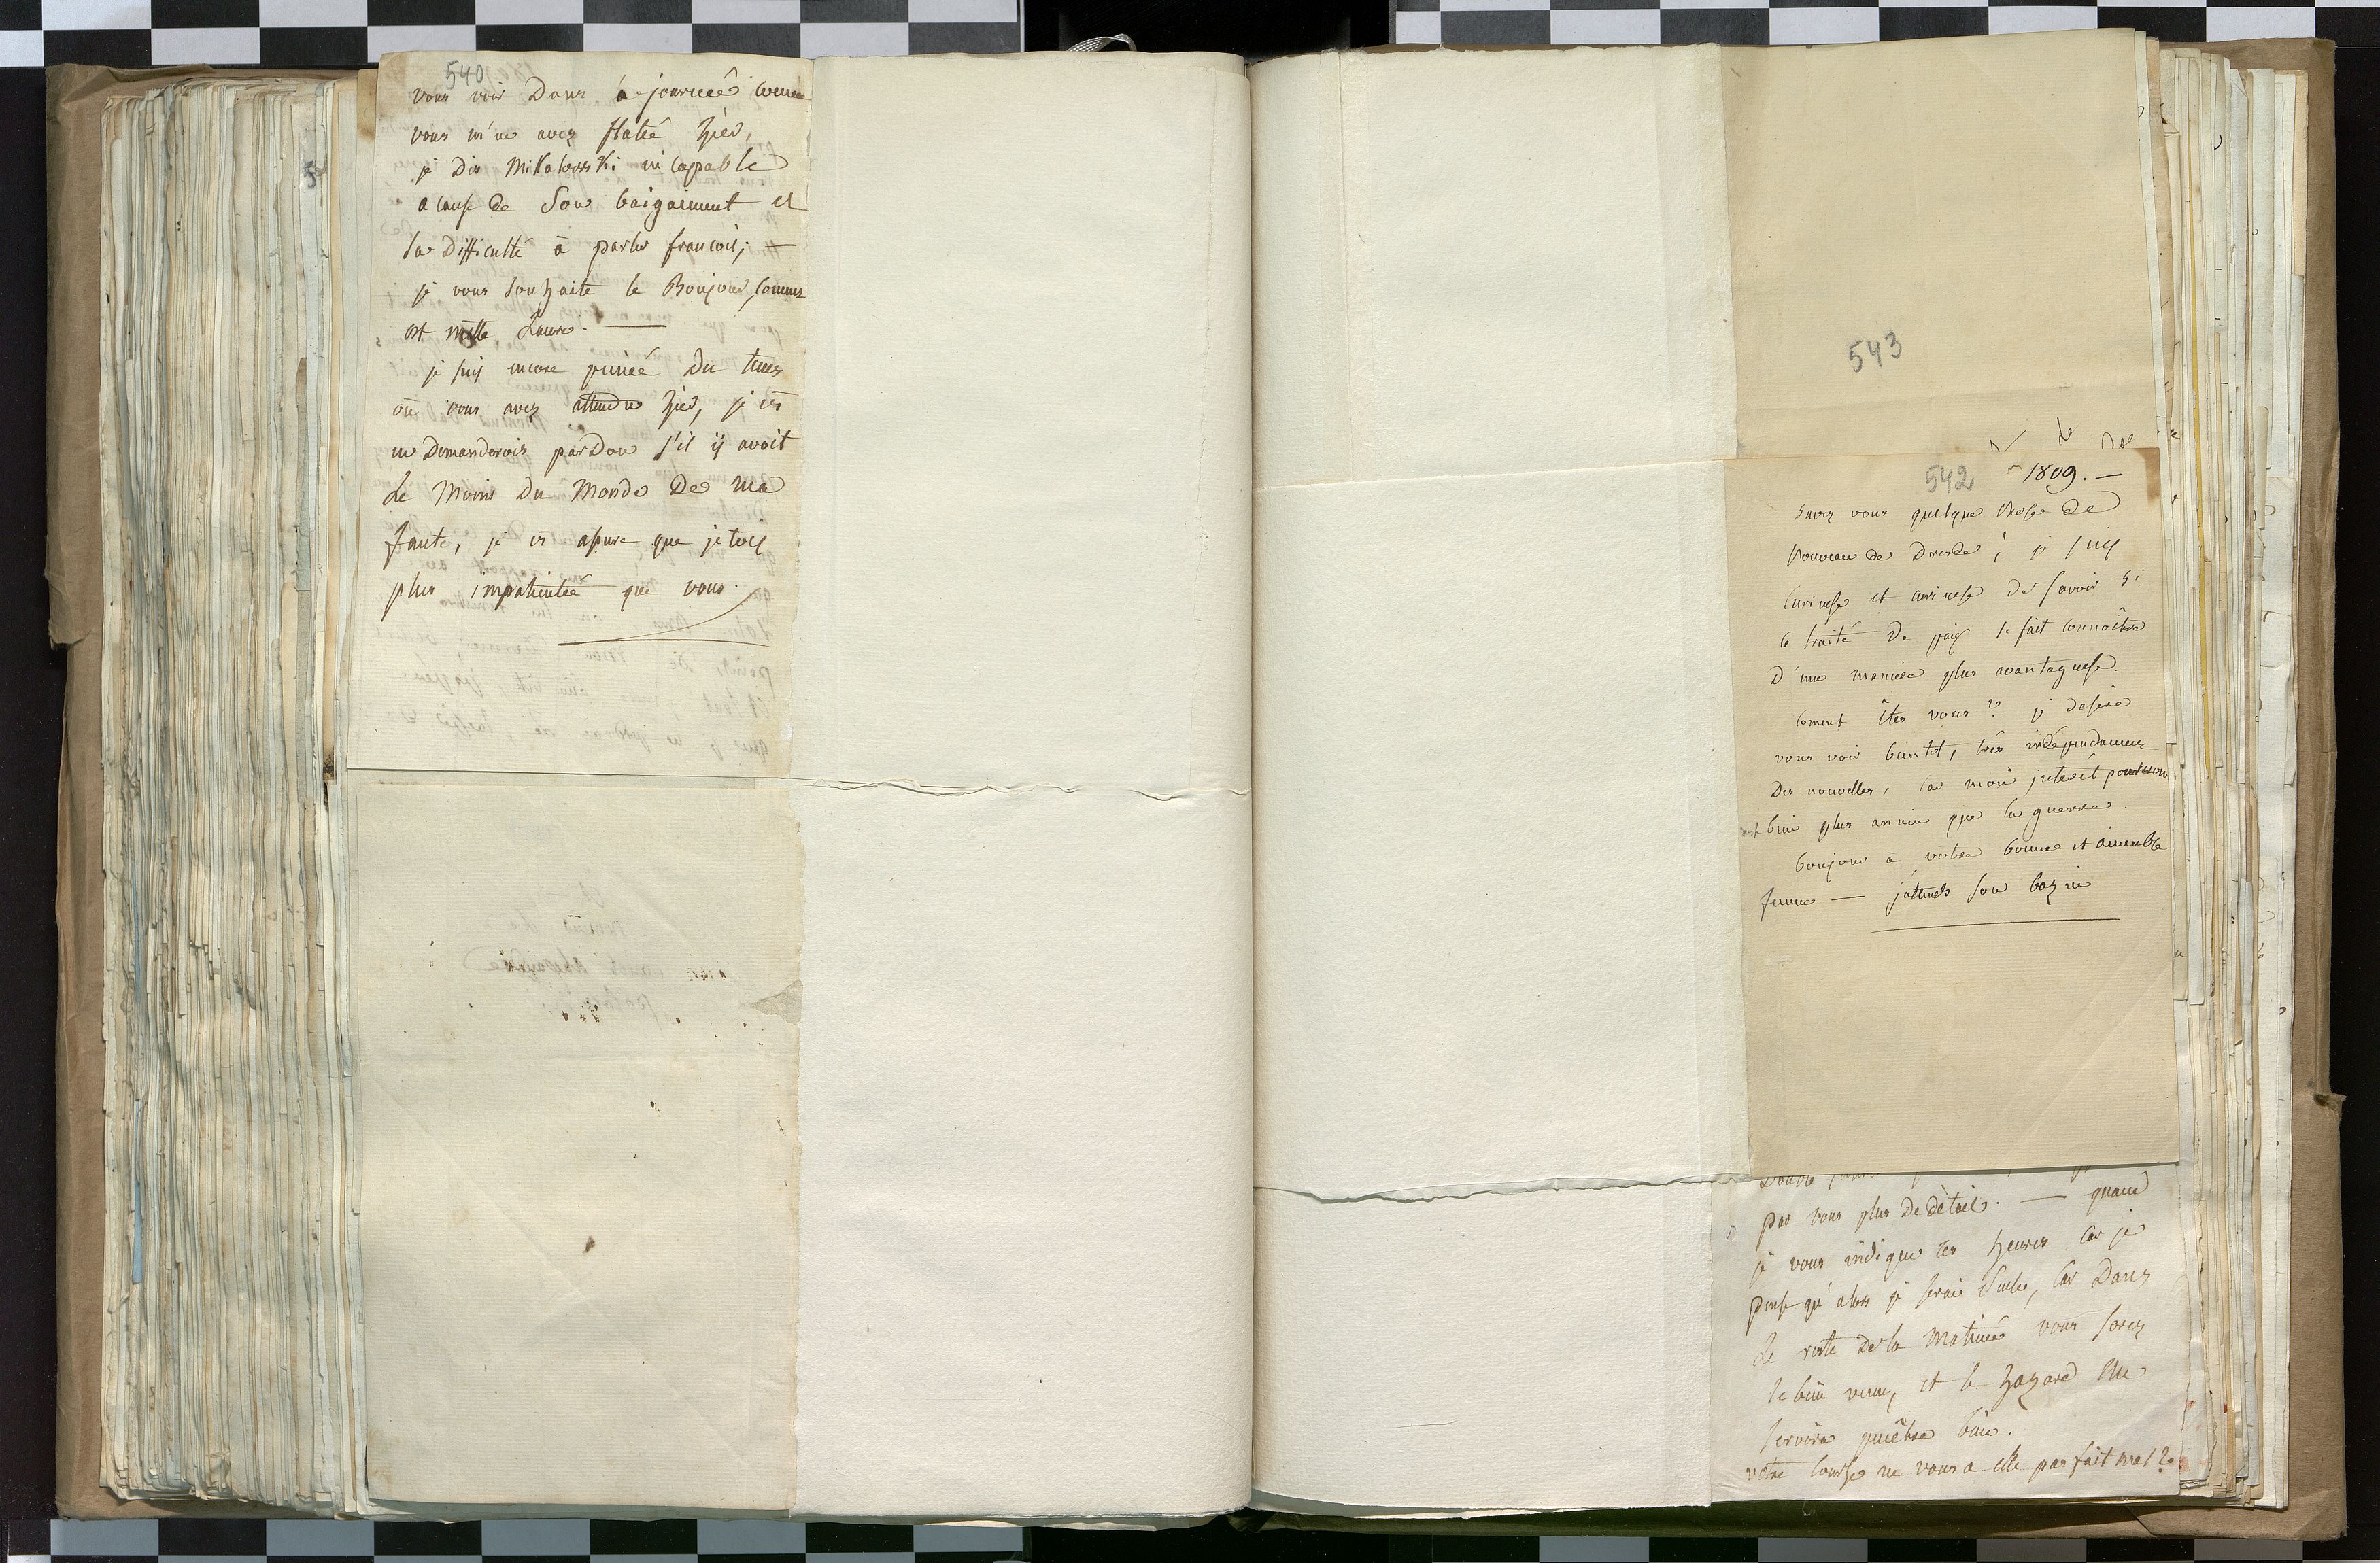 540
vous voir Dans la journeé comme
vous m'en avez flatté hier,
je Dis Mikalowski incapable
a cause de Son baigaiment et
sa Difficulté à parler francois; —
je vous Souhaite le Bonjour, comme
et Mlle Laure. —
je suis encore peineé Du tems
où vous avez attendu hier, je vs
en Demanderois parDon s'il ij avoit
Le Moins Du Monde De ma
faute, je vs assure que jetois
plus impatientée que vous.
543
542 1809. —
Savez vous quelque chose de
Nouveau de Dresde; je suis
curieuse et curieuse de savoir si
le traité De paix se fait connoitre
D'une maniere plus avantageuse.
coment êtes vous? je desire
vous voir bientot, très indépendament
Des nouvelles, car mon interêt pour vous
est bien plus animé que la guerre.
bonjour à votre bonne et aimable
femme — j'attends son
pas vous plus De détail. — quand
je vous indique les heures car je
pense qu'alors je serai Seule, car Dans
Le reste De la Matineé vous serez
le bien venu, et le hazard me
servira peutêtre bien.
votre course ne vous a elle pas fait mal?